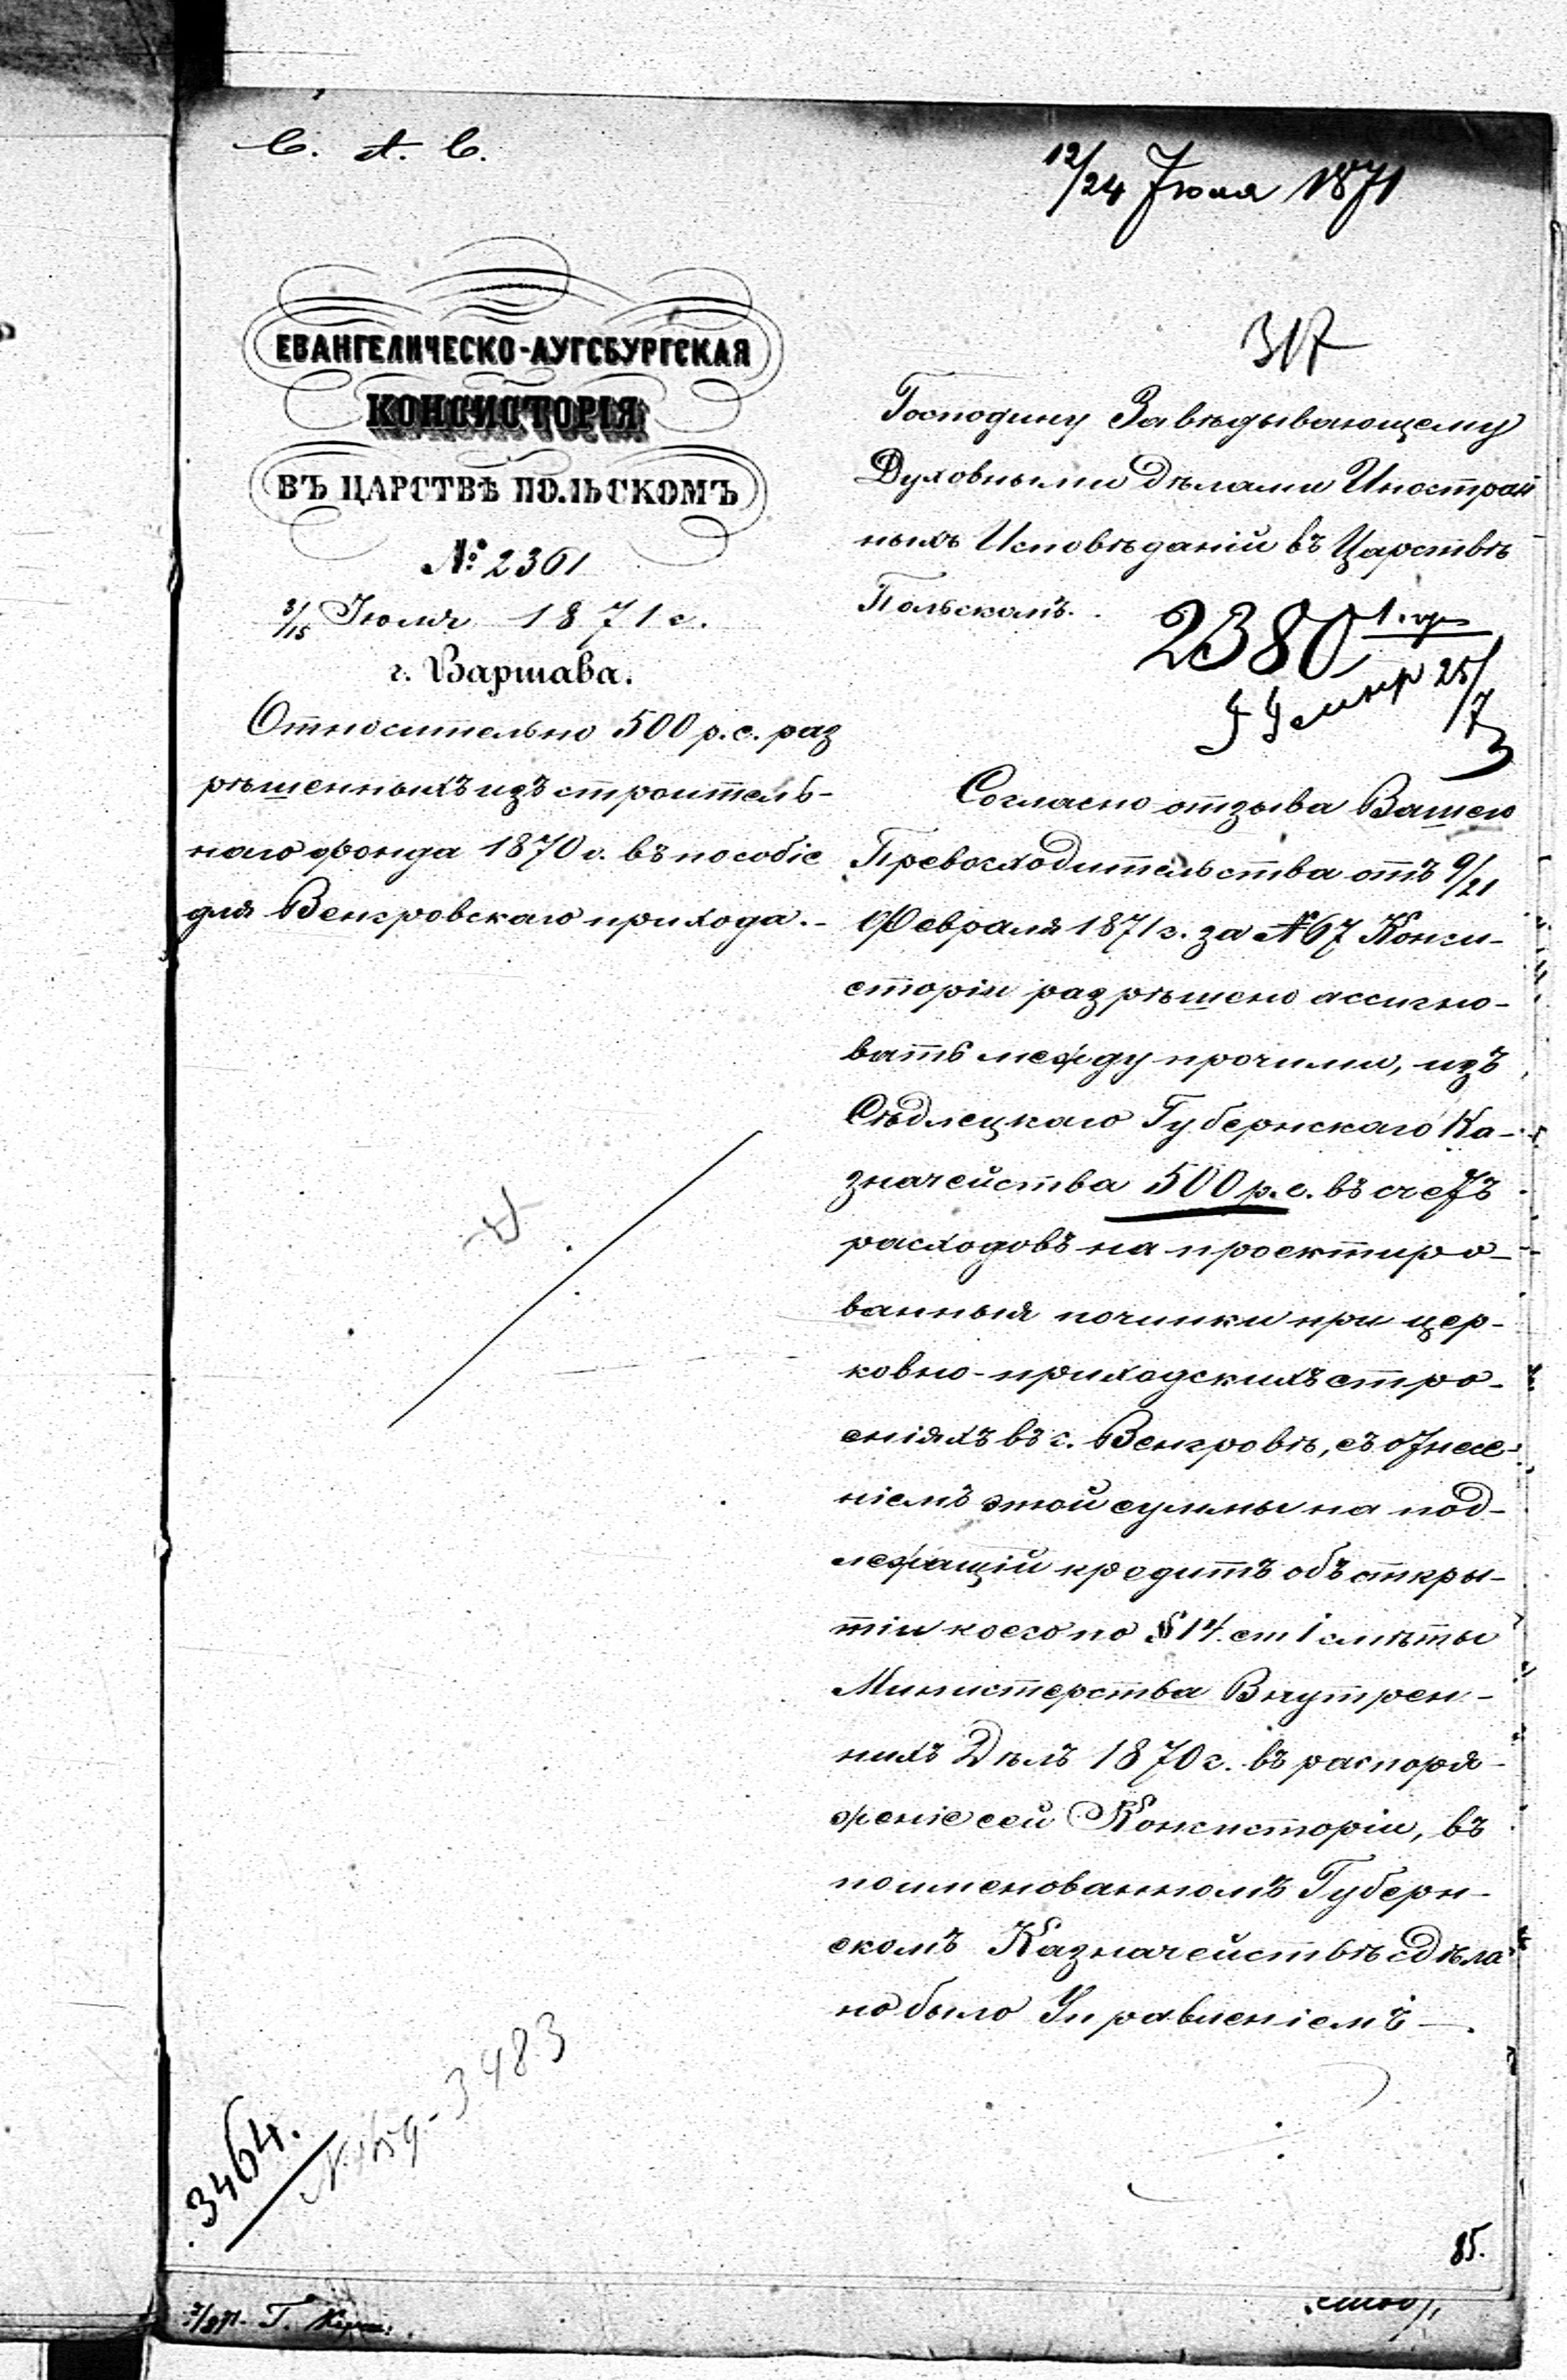 С. А. С.
12/24 Июля 1871
317
ЕВАНГЕЛИЧЕСКО-АУГСБУРГСКАЯ
КОНСИСТОРІЯ
ВЪ ЦАРСТВѢ ПОЛЬСКОМЪ
№ 2301
3/15 Іюля 1871 г.
г. Варшава.
Относительно 500 р. с. раз
рѣшенныхъ изъ строитель-
наго фонда 1870 г. въ пособіе
для Венгровскаго прихода.-
Господину Завѣдывающему
Духовными дѣлами Иностран
ныхъ Исповѣданій въ Царствѣ
Польскомъ.
2380
25/7
Согласно отзыва Вашего
Превосходительства отъ 9/21
Февраля 1871 г. за № 67 Конси-
сторіи разрѣшено ассигно-
вать между прочими, изъ
Сѣдлецкаго Губернскаго Ка-
значейства 500 р. с. въ счетъ
расходовъ на проектиро-
ванныя починки при цер-
ковно-приходскихъ стро-
еніяхъ въ г. Венгровѣ, съ отнесе-
ніемъ этой суммы на под-
лежащій кредитъ объ откры-
тіи коего по § 14 ст 1 смѣты
Министерства Внутрен-
нихъ Дѣлъ 1870 г. въ распоря-
женіе сей Консисторіи, въ
поименованномъ Губерн-
скомъ Казначействѣ сдѣла
но было Управленіемъ
3464.
3483
85.